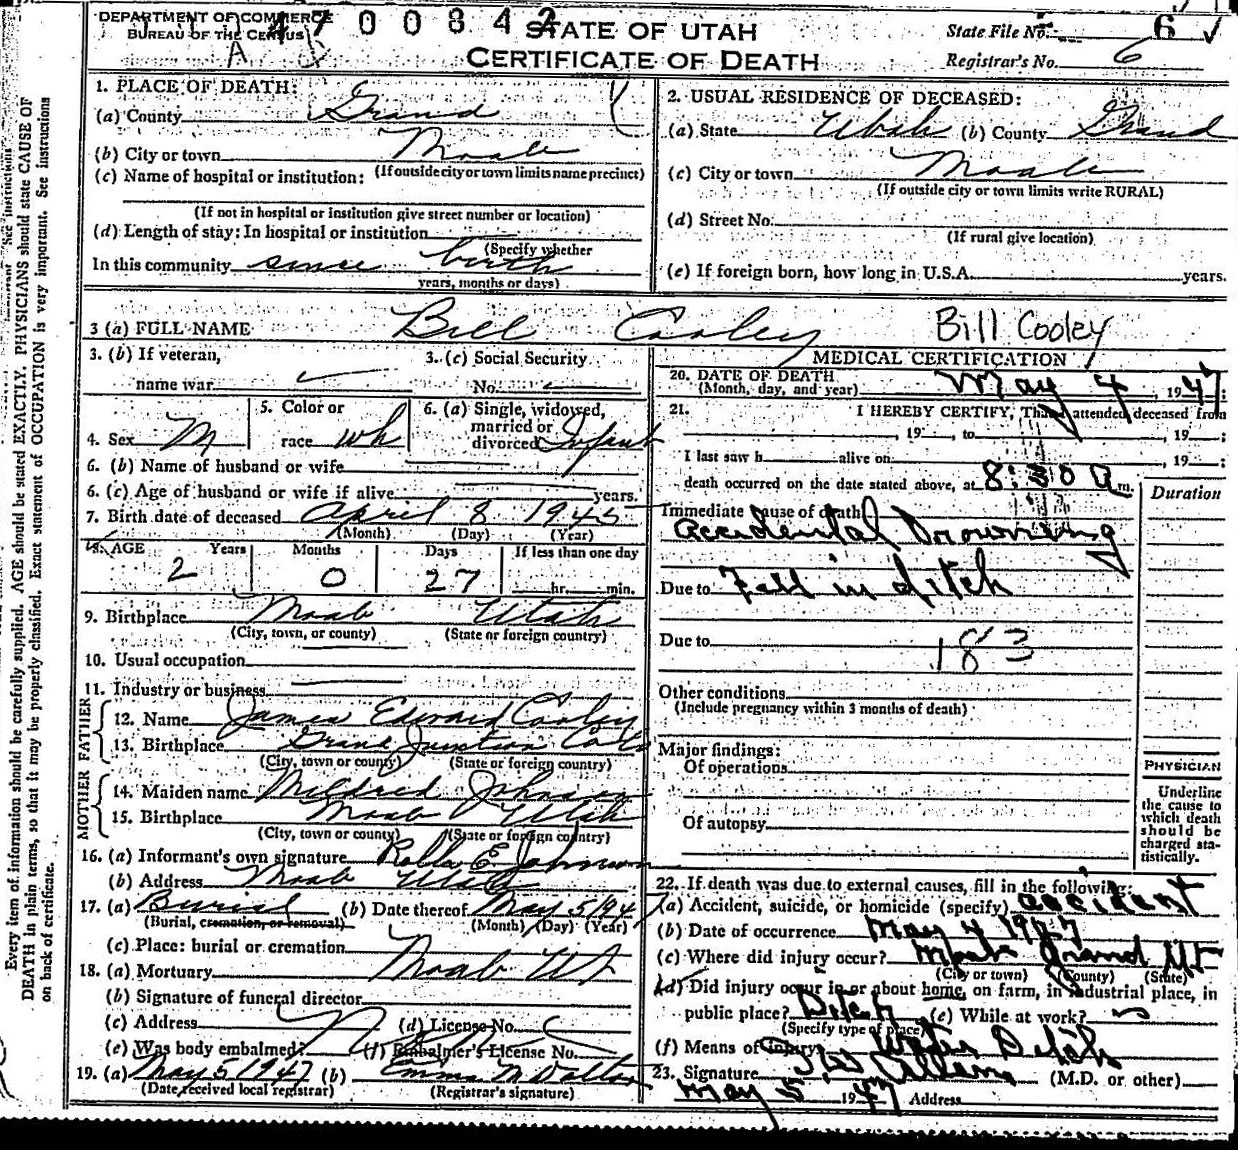 DEPARTMENT OF COMMERCE
BUREAU OF THE CENSUS
4700842
STATE OF UTAH
CERTIFICATE OF DEATH
State File No. 6
Registrar's No. 6
1. PLACE OF DEATH:
(a) County Grand
(b) City or town Moab
(If outside city or town limits name precinct)
(c) Name of hospital or institution:
(If not in hospital or institution give street number or location)
(d) Length of stay: In hospital or institution
(Specify whether
In this community since birth
years, months or days)
2. USUAL RESIDENCE OF DECEASED:
(a) State Utah (b) County Grand
(c) City or town Moab
(If outside city or town limits write RURAL)
(d) Street No.
(If rural give location)
(e) If foreign born, how long in U.S.A. years.
3 (a) FULL NAME Bill Cooley Bill Cooley
3. (b) If veteran,
name war
3. (c) Social Security
No.
4. Sex M
5. Color or
race wh
6. (a) Single, widowed,
married or
divorced Infant
6. (b) Name of husband or wife
6. (c) Age of husband or wife if alive years.
7. Birth date of deceased April 8 1945
(Month) (Day) (Year)
8. AGE Years Months Days If less than one day
2 0 27 hr. min.
9. Birthplace Moab Utah
(City, town, or county) (State or foreign country)
10. Usual occupation
11. Industry or business
FATHER
12. Name James Edward Cooley
13. Birthplace Grand Junction Colo
(City, town or county) (State or foreign country)
MOTHER
14. Maiden name Mildred Johnson
15. Birthplace Moab Utah
(City, town or county) (State or foreign country)
16. (a) Informant's own signature Rolla E. Johnson
(b) Address Moab Utah
17. (a) Burial (b) Date thereof May 5 1947
(Burial, cremation, or removal) (Month) (Day) (Year)
(c) Place: burial or cremation
18. (a) Mortuary Moab Ut
(b) Signature of funeral director
(c) Address (d) License No.
(e) Was body embalmed? (f) Embalmer's License No.
19. (a) May 5 1947 (b) Emma M Dalton
(Date received local registrar) (Registrar's signature)
MEDICAL CERTIFICATION
20. DATE OF DEATH
(Month, day, and year) May 4, 1947:
21. I HEREBY CERTIFY, That I attended deceased from
, 19 , to , 19 ;
I last saw h alive on , 19 ;
death occurred on the date stated above, at 8:30 A m.
Duration
Immediate cause of death
Accidental Drowning
Due to Fell in ditch
Due to
183
Other conditions
(Include pregnancy within 3 months of death)
Major findings:
Of operations
Of autopsy
PHYSICIAN
Underline
the cause to
which death
should be
charged sta-
tistically.
22. If death was due to external causes, fill in the following:
(a) Accident, suicide, or homicide (specify) accident
(b) Date of occurrence May 4 1947
(c) Where did injury occur? Moab Grand Ut
(City or town) (County) (State)
(d) Did injury occur in or about home, on farm, in industrial place, in
public place? Ditch (e) While at work?
(Specify type of place)
(f) Means of injury Water Ditch
23. Signature Allen (M.D. or other)
May 5 1947 Address
Every item of information should be carefully supplied. AGE should be stated EXACTLY. PHYSICIANS should state CAUSE OF
DEATH in plain terms, so that it may be properly classified. Exact statement of OCCUPATION is very important. See instructions
on back of certificate.